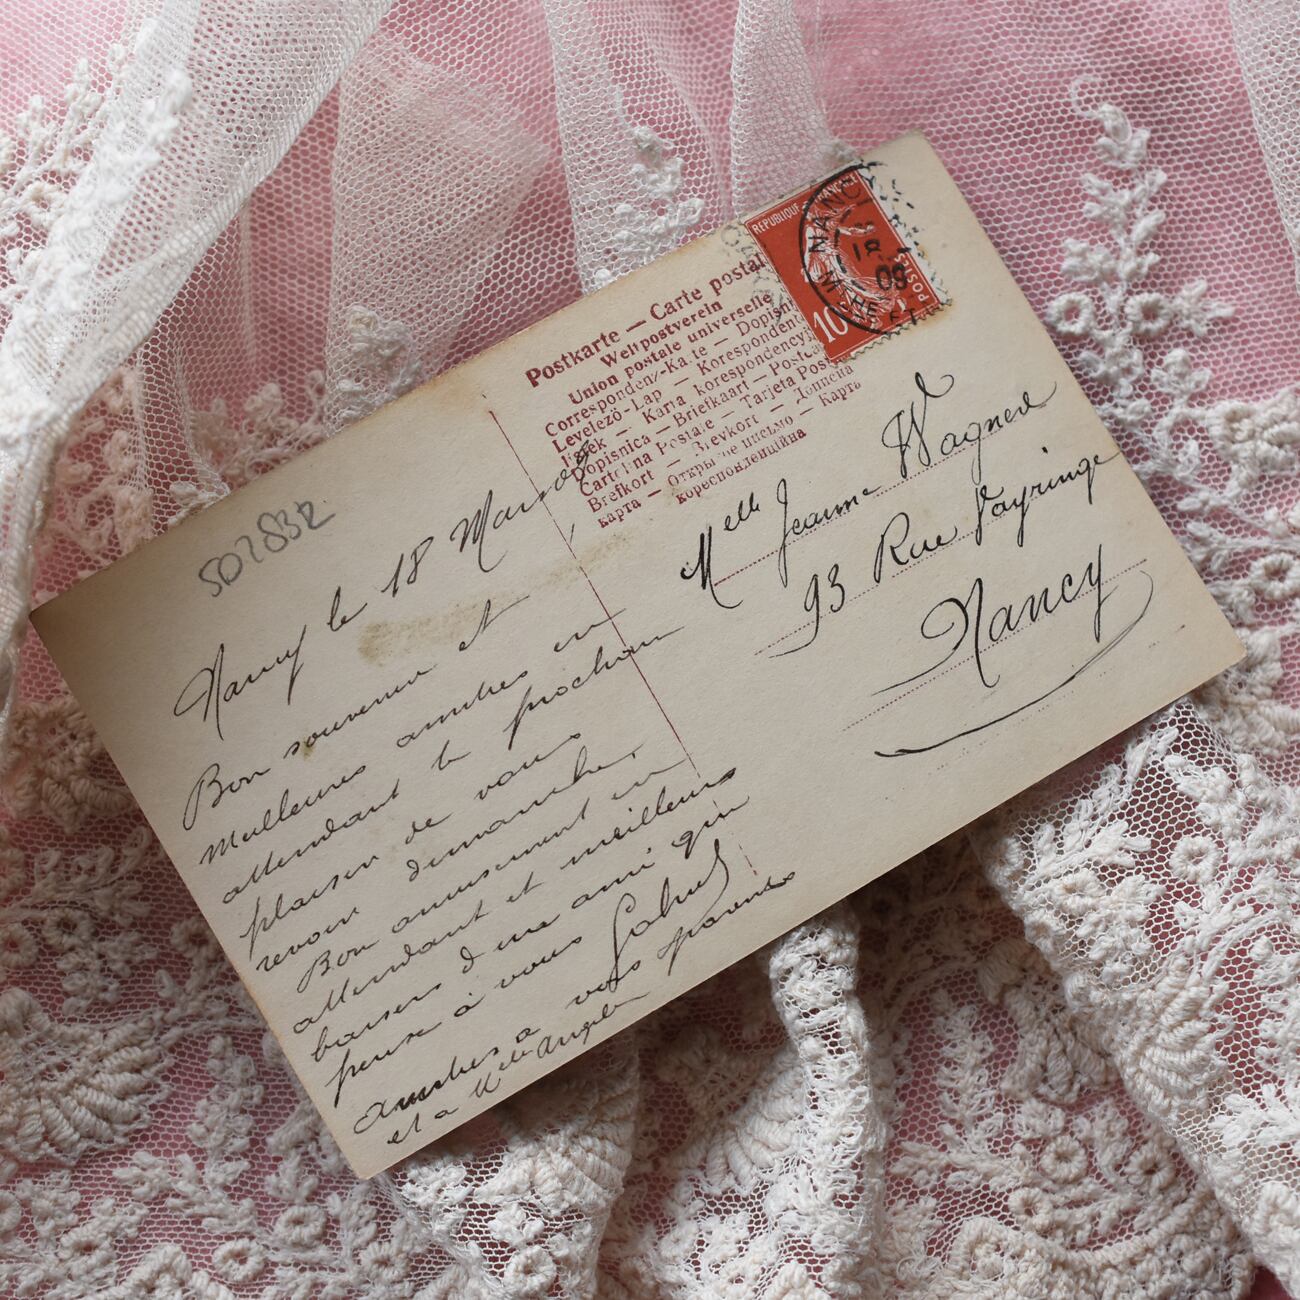 Postkarte — Carte postale
Weltpostverein
Union postale universelle
Correspondenz-Karte — Dopisni
Levelező-Lap — Korespondenc
Karta korespondencyj
Dopisnica — Briefkaart — Postca
Cartolina Postale — Tarjeta Post
Brefkort — Brevkort — Дописна
карта — Открытое письмо — Карта
кореспонденційна
REPUBLIQUE FRANÇAISE
POSTES
10
NANCY
18
09
M.-THE
507832
Nancy le 18 Mars 09
Bon souvenir et
meilleures amities en
attendant le prochain
plaisir de vous
revoir dimanche,
Bon amusement en
attendant et meilleurs
baisers d'une ami qui
pense à vous Gabriel
amities a vos parents
et a Melle Angele
Melle Jeanne Wagner
93 Rue Vayringe
Nancy